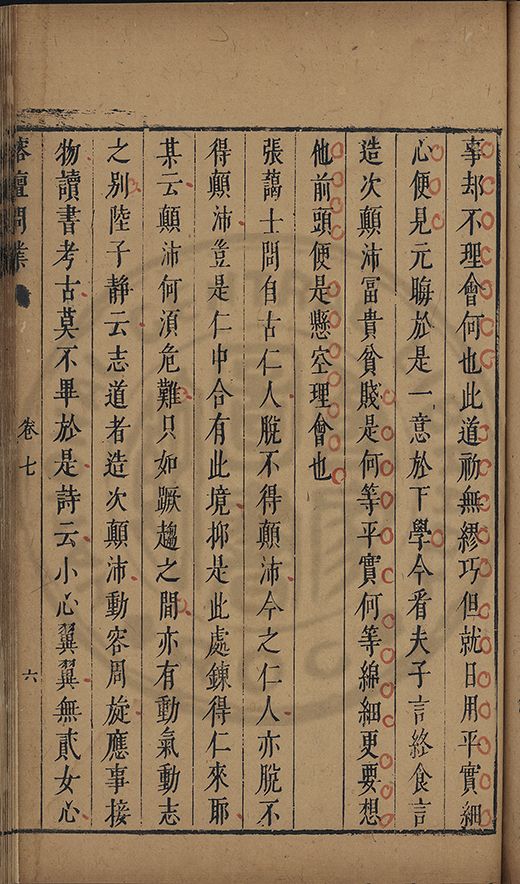 事却不理會何也此道初無繆巧但就日用平實細
心便見元晦於是一意於下學今看夫子言終食言
造次顛沛冨貴貧賤是何等平實何等綿細更要想
他前頭便是懸空理會也
張藹士問自古仁人脫不得顛沛今之仁人亦脫不
得顛沛豈是仁中合有此境抑是此處鍊得仁來耶
某云顛沛何湏危難只如蹶趨之間亦有動氣動志
之別陸子靜云志道者造次顛沛動容周旋應事接
物讀書考古莫不畢於是詩云小心翼翼無貳女心
榕壇問業
卷七
六